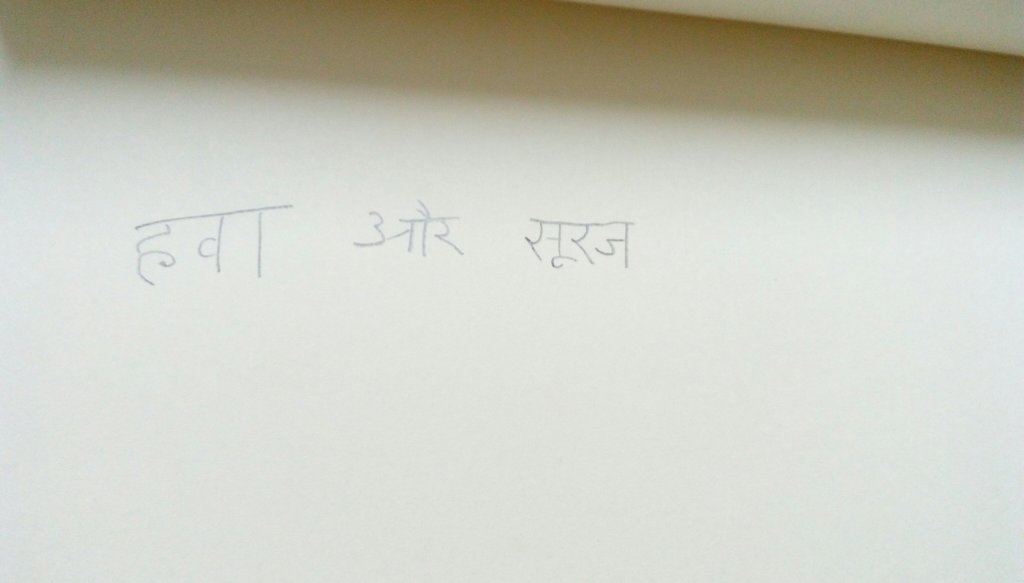 हवा और सूरज